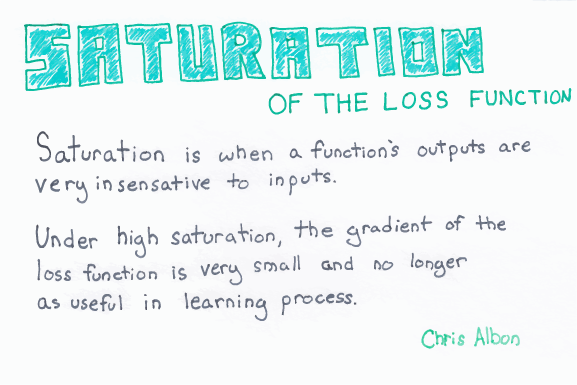 SATURATION
OF THE LOSS FUNCTION
Saturation is when a function's outputs are
very insensative to inputs.
Under high saturation, the gradient of the
loss function is very small and no longer
as useful in learning process.
Chris Albon